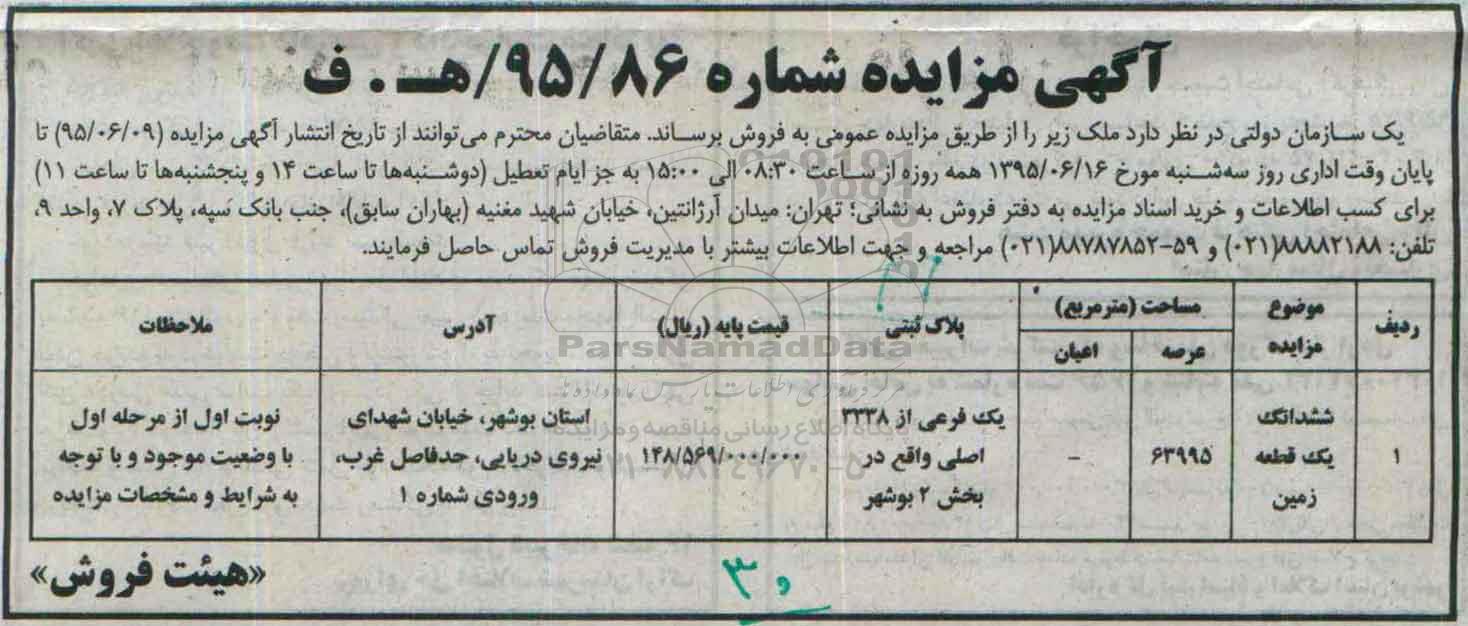 آگهی مزایده شماره ۹۵/۸۶/هـ . ف
یک سازمان دولتی در نظر دارد ملک زیر را از طریق مزایده عمومی به فروش برساند. متقاضیان محترم می‌توانند از تاریخ انتشار آگهی مزایده (۹۵/۰۶/۰۹) تا
پایان وقت اداری روز سه‌شنبه مورخ ۱۳۹۵/۰۶/۱۶ همه روزه از ساعت ۰۸:۳۰ الی ۱۵:۰۰ به جز ایام تعطیل (دوشنبه‌ها تا ساعت ۱۴ و پنجشنبه‌ها تا ساعت ۱۱)
برای کسب اطلاعات و خرید اسناد مزایده به دفتر فروش به نشانی؛ تهران: میدان آرژانتین، خیابان شهید مغنیه (بهاران سابق)، جنب بانک سپه، پلاک ۷، واحد ۹،
تلفن: ۸۸۸۸۲۱۸۸(۰۲۱) و ۵۹-۸۸۷۸۷۸۵۲(۰۲۱) مراجعه و جهت اطلاعات بیشتر با مدیریت فروش تماس حاصل فرمایند.
ردیف موضوع مزایده مساحت (مترمربع) پلاک ثبتی قیمت پایه (ریال) آدرس ملاحظات
عرصه اعیان
ششدانگ یک فرعی از ۳۳۳۸ استان بوشهر، خیابان شهدای نوبت اول از مرحله اول
۱ یک قطعه ۶۳۹۹۵ - اصلی واقع در ۱۴۸/۵۶۹/۰۰۰/۰۰۰ نیروی دریایی، حدفاصل غرب، با وضعیت موجود و با توجه
زمین بخش ۲ بوشهر ورودی شماره ۱ به شرایط و مشخصات مزایده
«هیئت فروش»
ParsNamadData